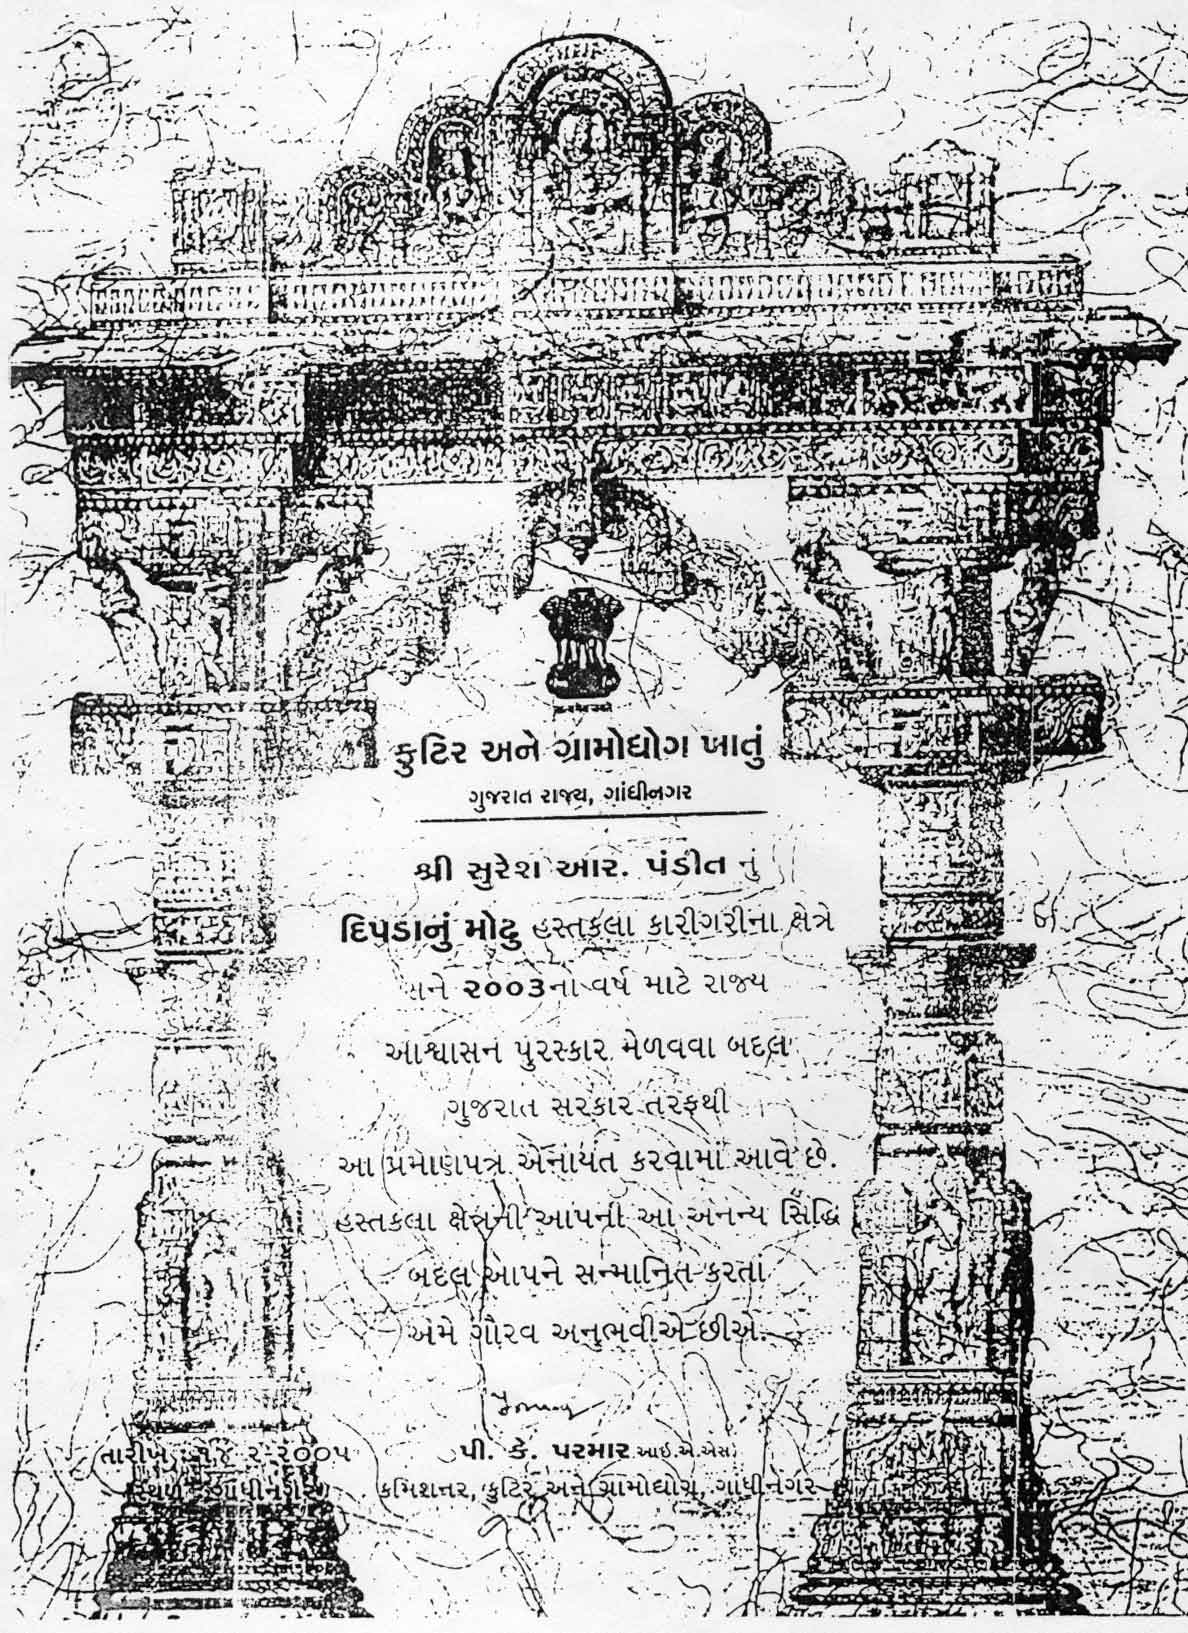 કુટિર અને ગ્રામોધોગ ખાતું
ગુજરાત રાજ્ય, ગાંધીનગર
શ્રી સુરેશ આર. પંડીત નું
દિપડાનું મોટુ હસ્તકલા કારીગરીના ક્ષેત્રે
અને ૨૦૦૩ના વર્ષ માટે રાજ્ય
આશ્વાસન પુરસ્કાર મેળવવા બદલ
ગુજરાત સરકાર તરફથી
આ પ્રમાણપત્ર એનાયત કરવામાં આવે છે.
હસ્તકલા ક્ષેત્રની આપની આ અનન્ય સિદ્ધિ
બદલ આપને સન્માનિત કરતા
અમે ગૌરવ અનુભવીએ છીએ.
પી. કે. પરમાર આઈ.એ.એસ
તારીખ ૧૪-૨-૨૦૦૫
કમિશનર, કુટિર અને ગ્રામોધોગ, ગાંધીનગર
સ્થળ ગાંધીનગર